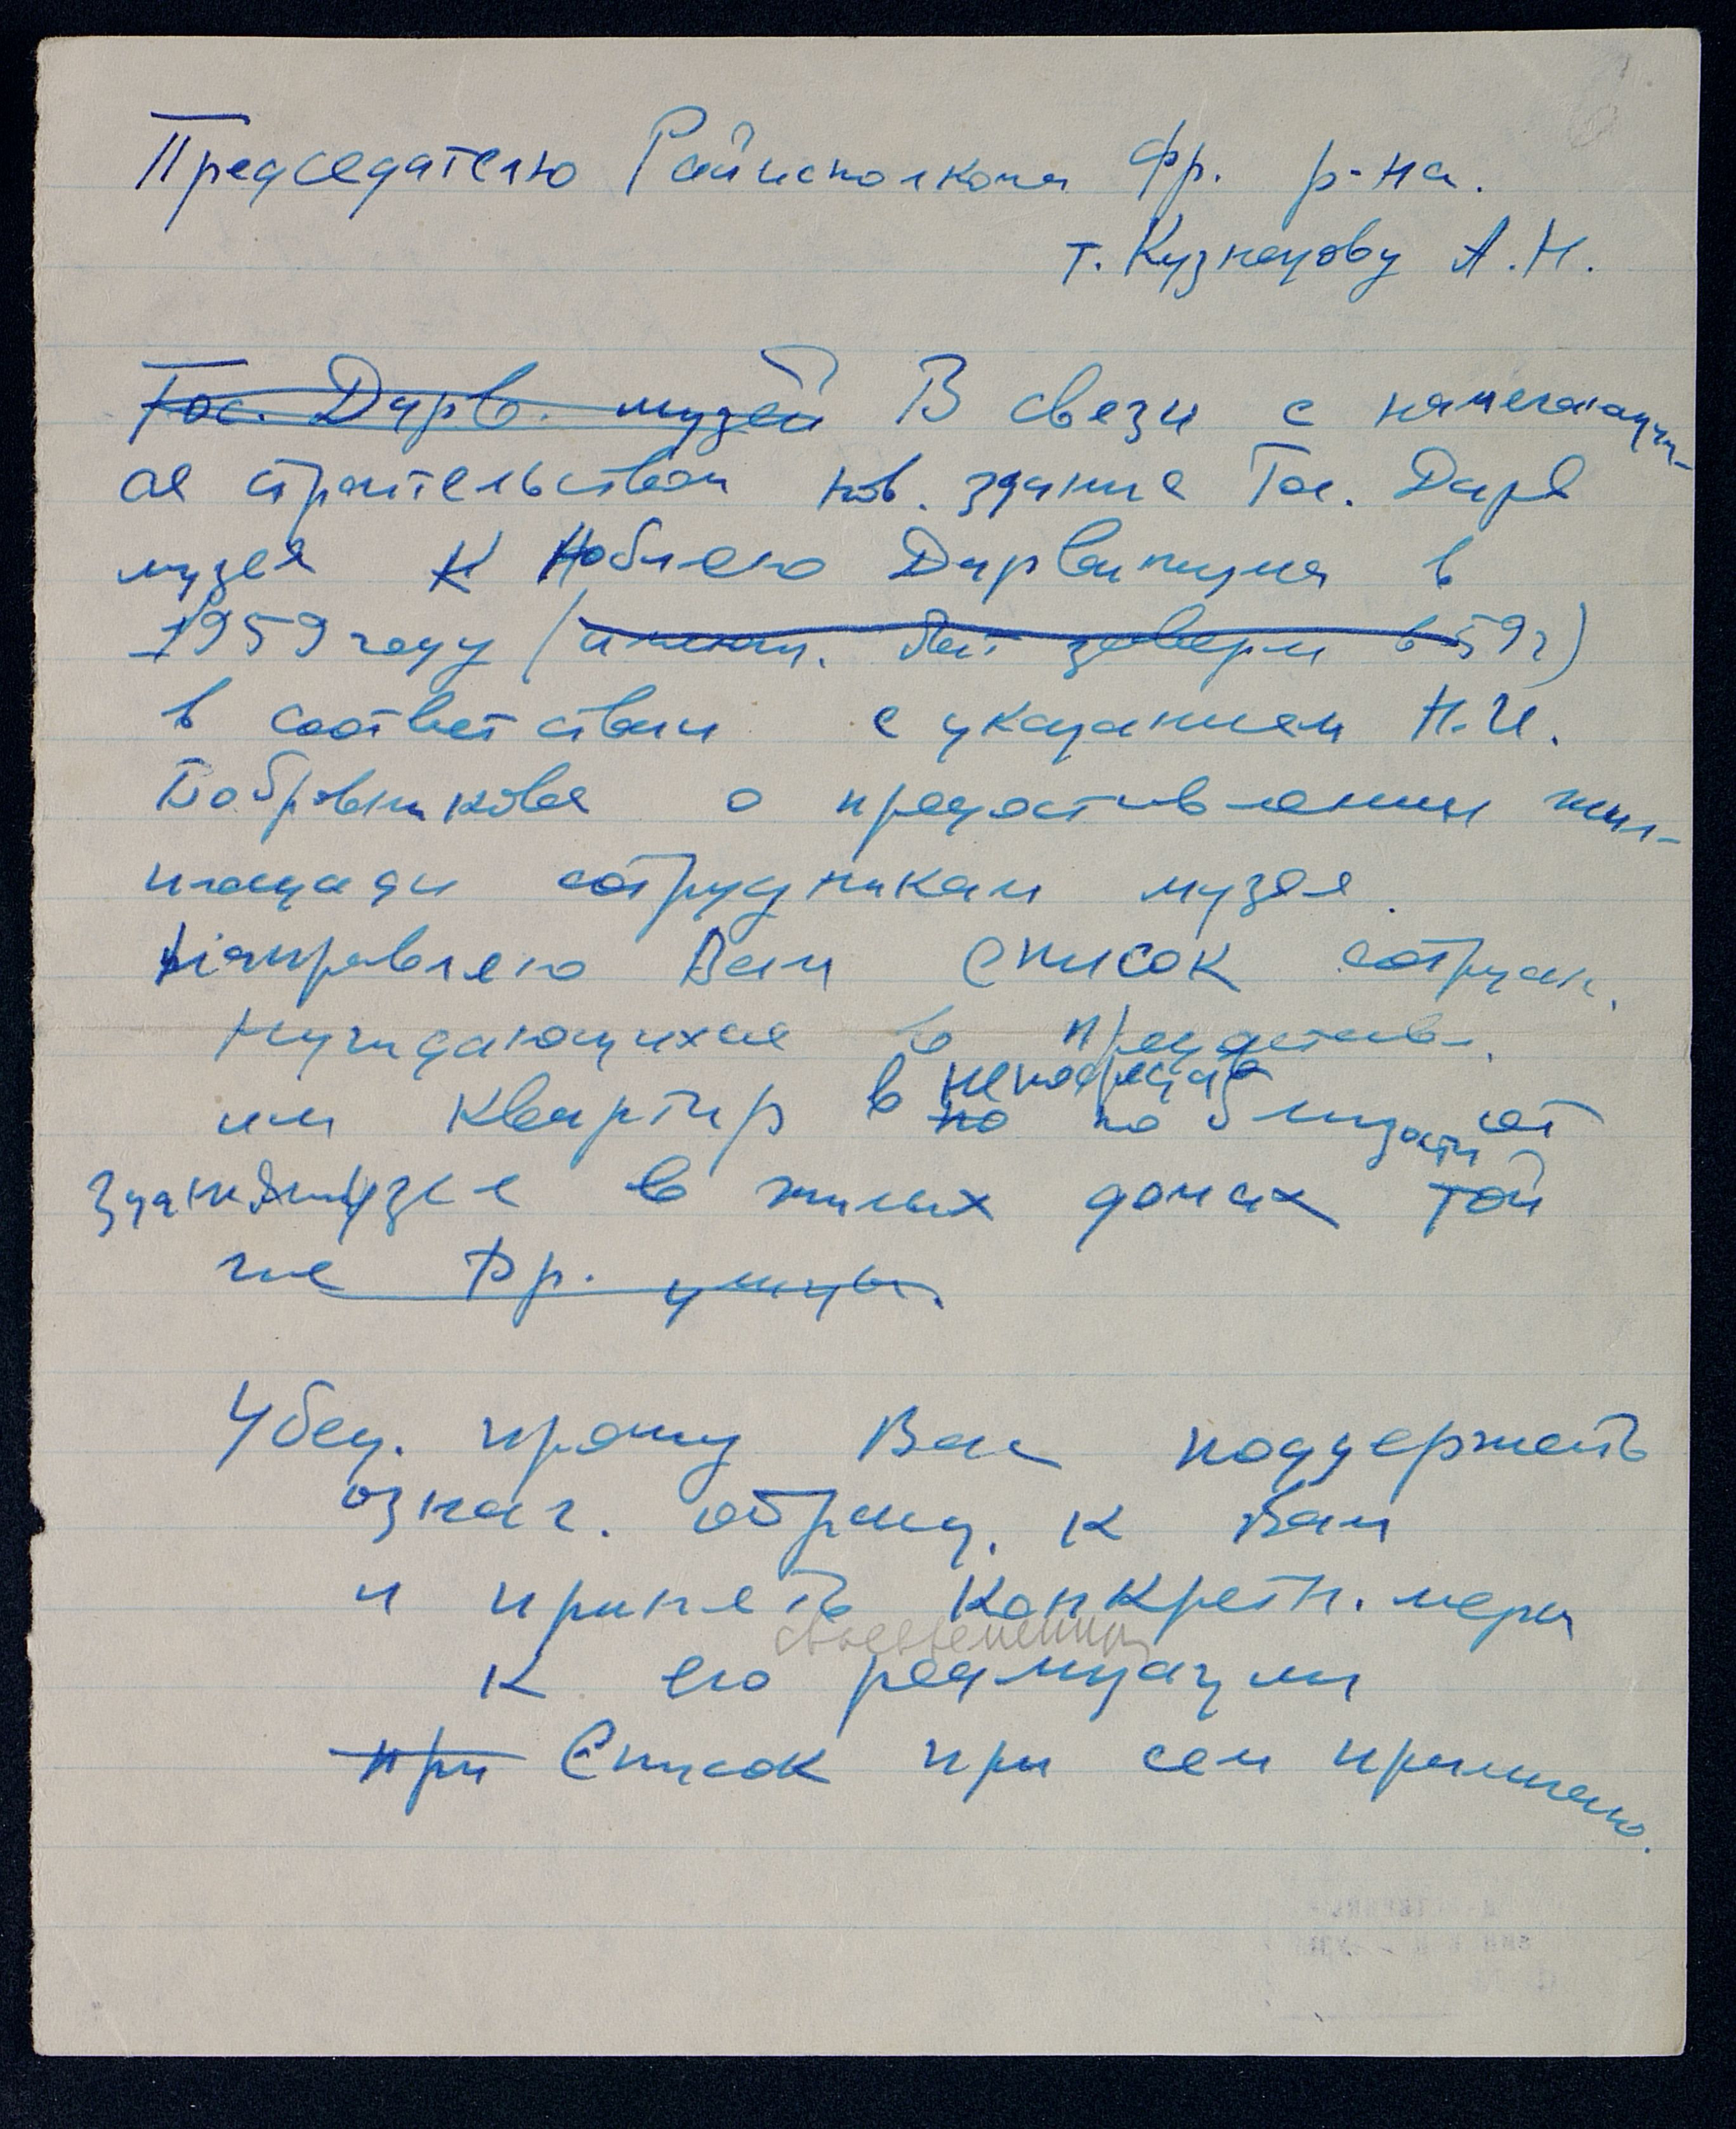 Председателю Райисполкома Фр. р-на.
т. Кузнецову А.Н.
Гос. Дарв. музей В связи с намечающим-
ся строительством нов. здания Гос. Дарв
музея к Юбилею Дарвинизма в
1959 году ( в 59 г)
в соответствии с указанием Н.И.
Бобровникова о предоставлении жил-
площади сотрудникам музея.
Направляю Вам список сотрудн.
нуждающихся в предоставл.
им квартир в непосредств
но по близости от
здания музея в жилых домах той
же Фр. улицы.
Убед. прошу Вас поддержать
означ. обращ. к Вам
и принять конкретн. меры
своевременной
к его реализации
при Список при сем прилагаю.